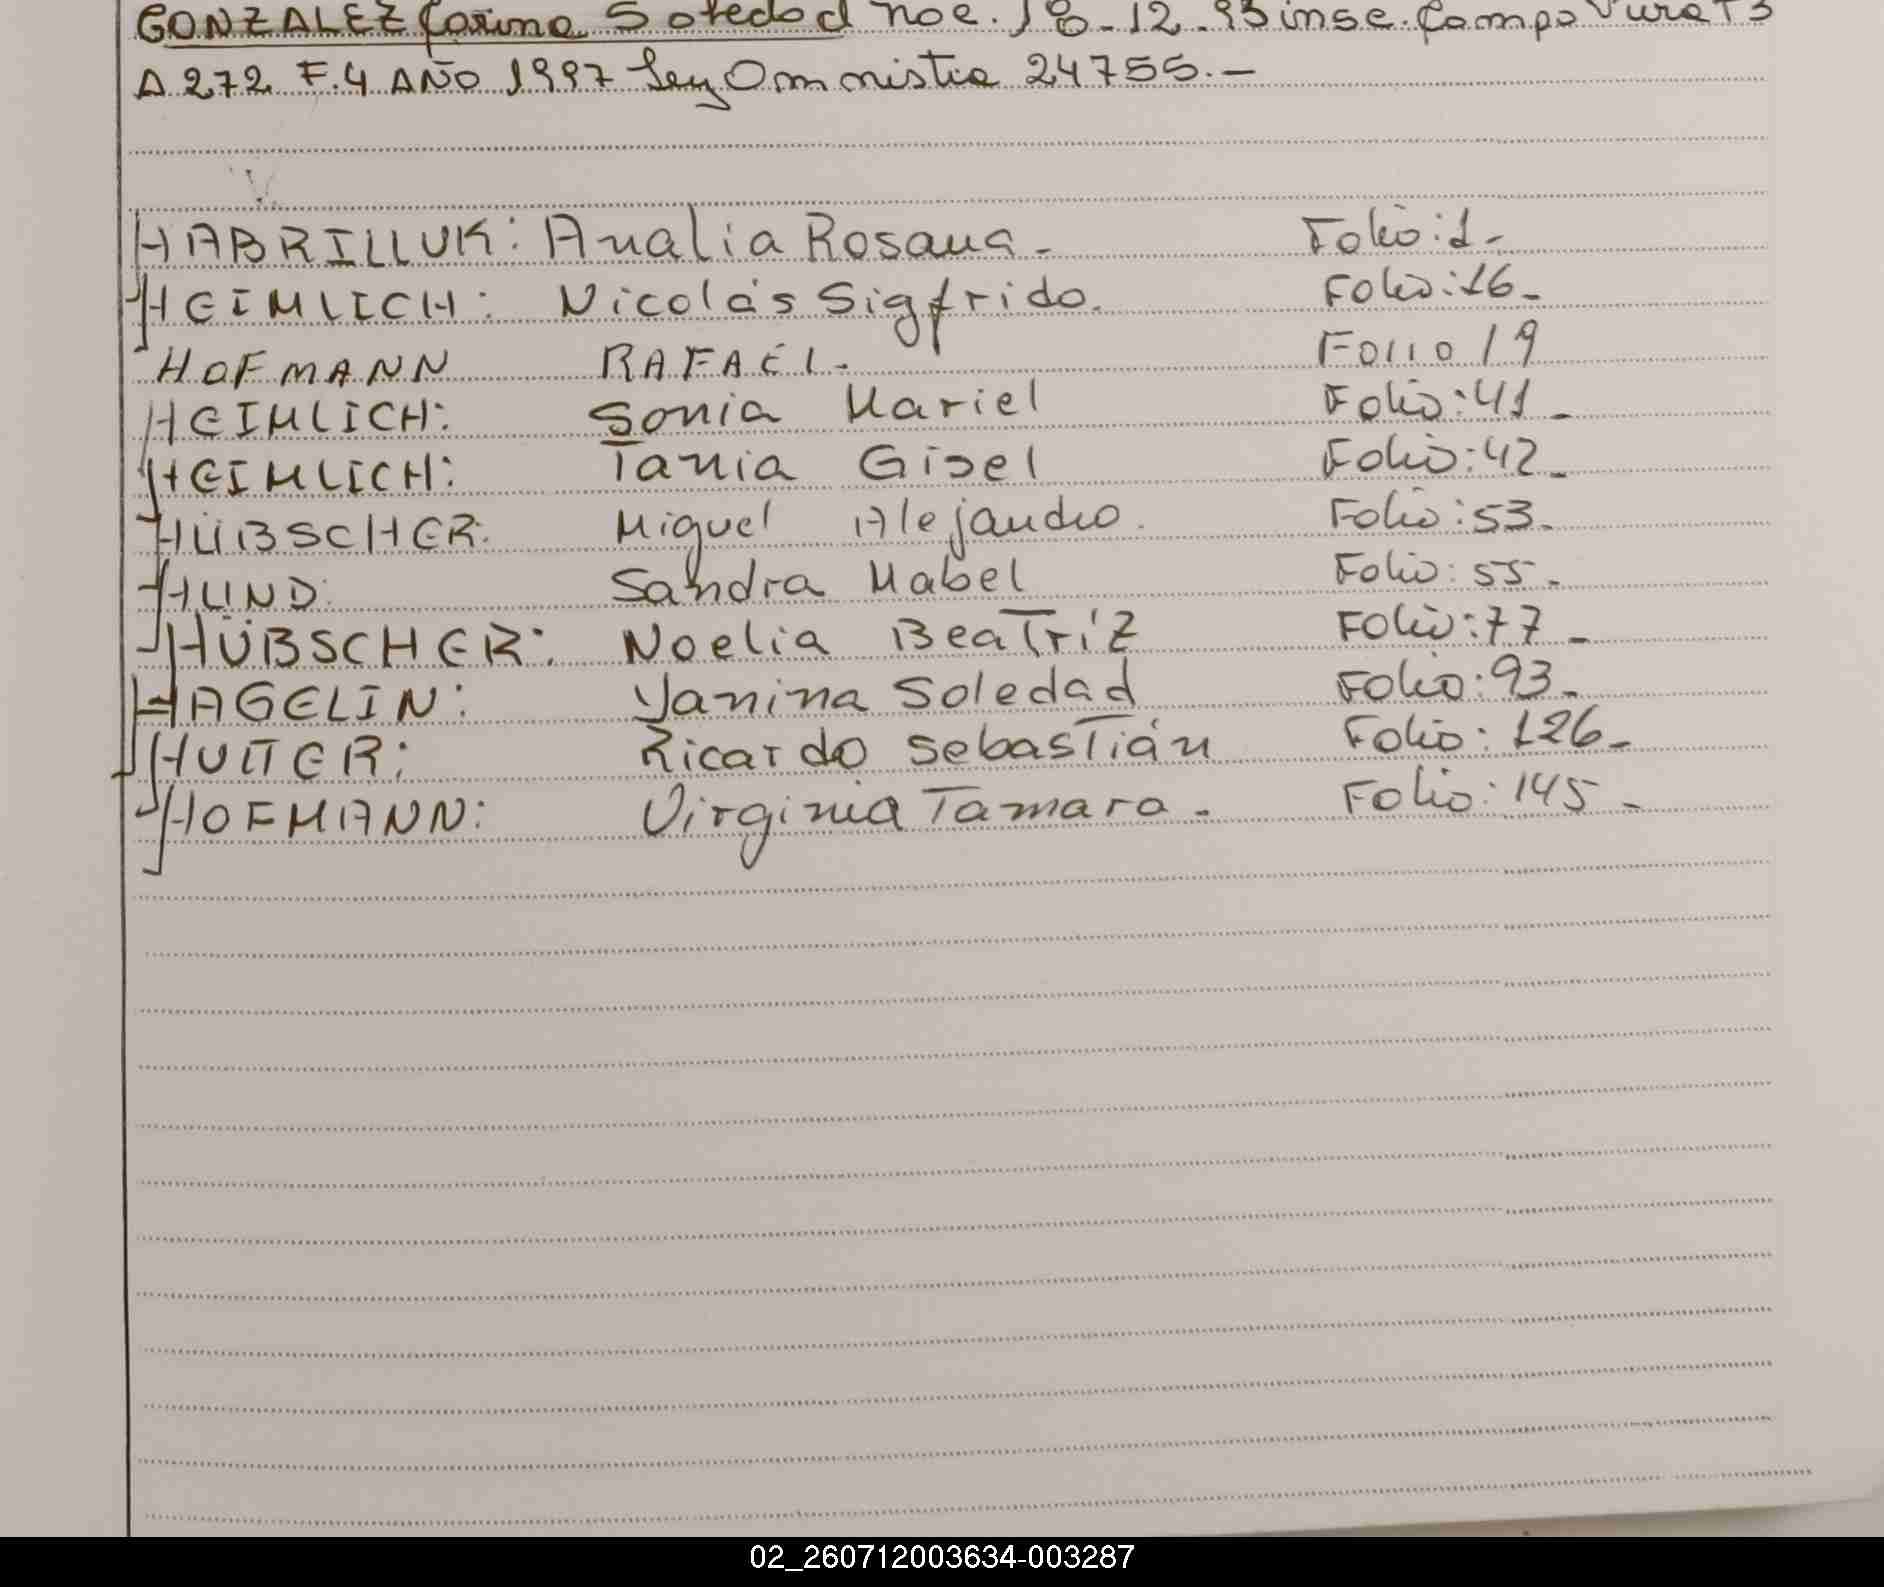 GONZALEZ Carina Soledad noc. 18-12-93 insc. Campo Viera T3
A 272 F.4 AÑO 1997 Ley Omnistia 24755.-
HABRILLUK: Analia Rosana- Folio:1-
HEIMLICH: Nicolás Sigfrido. Folio:16-
HOFMANN RAFAEL- FOLIO 19
HEIMLICH: Sonia Mariel Folio:41-
HEIMLICH: Tania Gisel Folio:42-
HÜBSCHER: Miguel Alejandro. Folio:53-
HUND: Sandra Mabel Folio:55-
HÜBSCHER: Noelia Beatríz Folio:77-
HAGELIN: Yanina Soledad Folio:93-
HUTTER: Ricardo Sebastián Folio:126-
HOFMANN: Virginia Tamara- Folio:145-
02_260712003634-003287